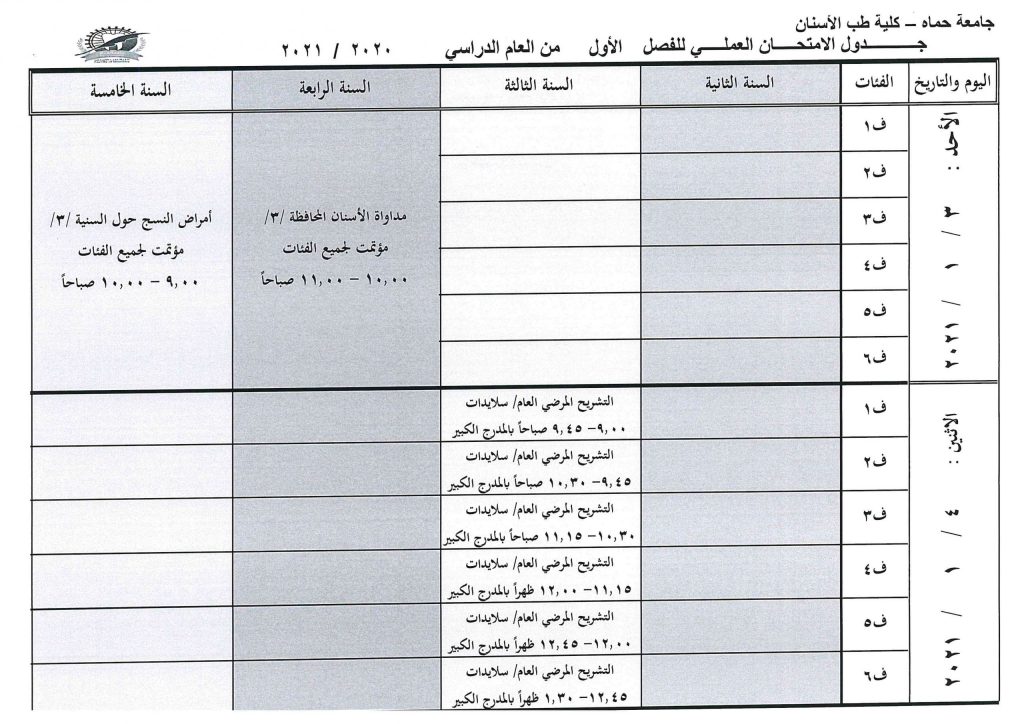 جامعة حماه – كلية طب الأسنان
جـــدول الامتحـــان العملـــي للفصل الأول من العام الدراسي ٢٠٢٠ / ٢٠٢١
اليوم والتاريخ الفئات السنة الثانية السنة الثالثة السنة الرابعة السنة الخامسة
الأحد : ٣ / ١ / ٢٠٢١
ف١
ف٢
ف٣
ف٤
ف٥
ف٦
مداواة الأسنان المحافظة /٣/
مؤتمت لجميع الفئات
١٠,٠٠ – ١١,٠٠ صباحاً
أمراض النسج حول السنية /٣/
مؤتمت لجميع الفئات
٩,٠٠ – ١٠,٠٠ صباحاً
الاثنين : ٤ / ١ / ٢٠٢١
ف١
التشريح المرضي العام/ سلايدات
٩,٠٠– ٩,٤٥ صباحاً بالمدرج الكبير
ف٢
التشريح المرضي العام/ سلايدات
٩,٤٥– ١٠,٣٠ صباحاً بالمدرج الكبير
ف٣
التشريح المرضي العام/ سلايدات
١٠,٣٠– ١١,١٥ صباحاً بالمدرج الكبير
ف٤
التشريح المرضي العام/ سلايدات
١١,١٥– ١٢,٠٠ ظهراً بالمدرج الكبير
ف٥
التشريح المرضي العام/ سلايدات
١٢,٠٠– ١٢,٤٥ ظهراً بالمدرج الكبير
ف٦
التشريح المرضي العام/ سلايدات
١٢,٤٥– ١,٣٠ ظهراً بالمدرج الكبير